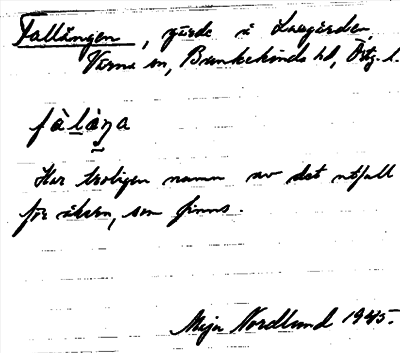 Fallängen, gärde å Lussgården,
Värna sn, Bankekinds hd, Östg. l.
fàlàŋa
Har troligen namn av det utfall
för älven, som finns.
Maja Nordlund 1945.